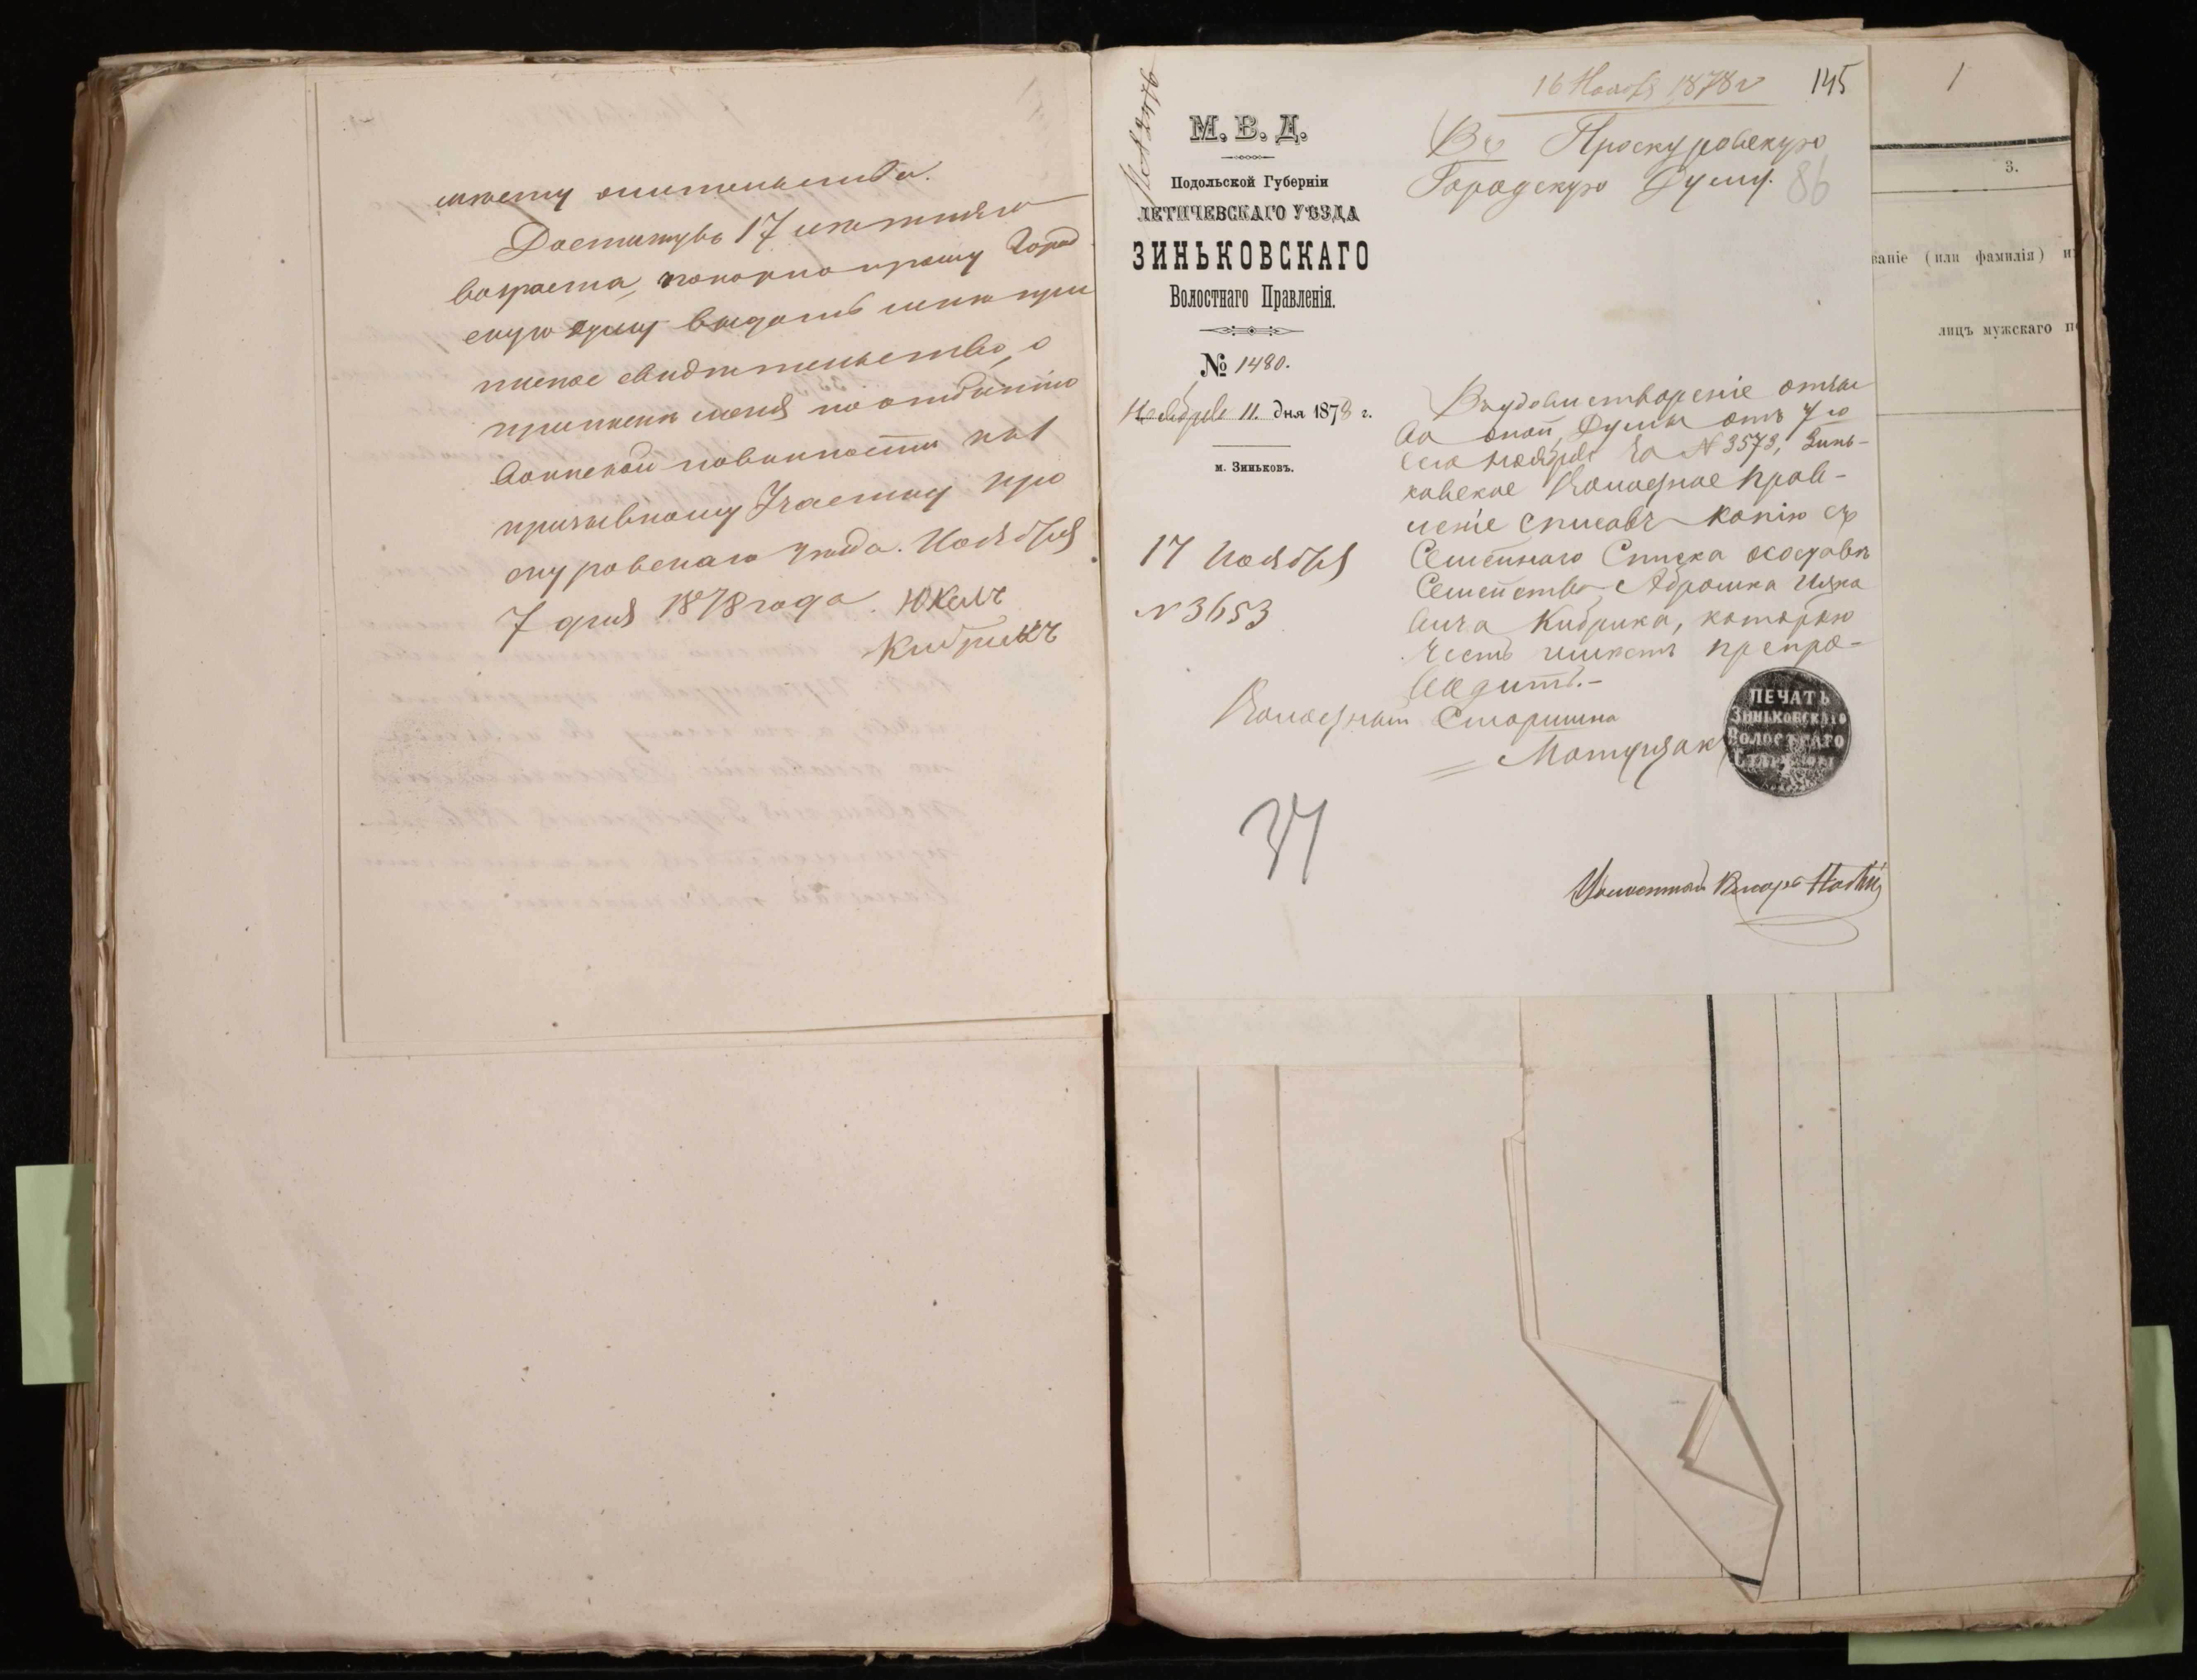 моему жительства.
Достигувъ 17 летняго
возраста, покорно прошу Город
скую думу выдать мне при
писное свидетельство, о
приписке меня по отбытию
воинской повинности къ 1
призывному Участку Про
скуровскаго уезда. Ноября
7 дня 1878 года. Юкель
Кибрикъ
16 Ноября 1878 г
145
М. В. Д.
Подольской Губерніи
ЛЕТИЧЕВСКАГО УѢЗДА
ЗИНЬКОВСКАГО
Волостнаго Правленія.
№ 1480.
Ноября 11. дня 1878 г.
м. Зиньковъ.
17 Ноября
№ 3653
37
Въ Проскуровскую
Городскую Думу.
86
Въ удовлетвореніе отзы
ва оной Думы отъ 7 го
сего ноября за № 3573, Зинь-
ковское Волостное прав-
леніе списавъ копію съ
Семейнаго Списка о составе
Семейства Абрамка Ицко
вича Кибрика, которую
честь имеетъ препро-
водить.-
Волостной Старшина
ПЕЧАТЬ
ЗИНЬКОВСКАГО
ВОЛОСТНАГО
СТАРШИНЫ
1
3.
ваніе (или фамилія) и
лицъ мужскаго п